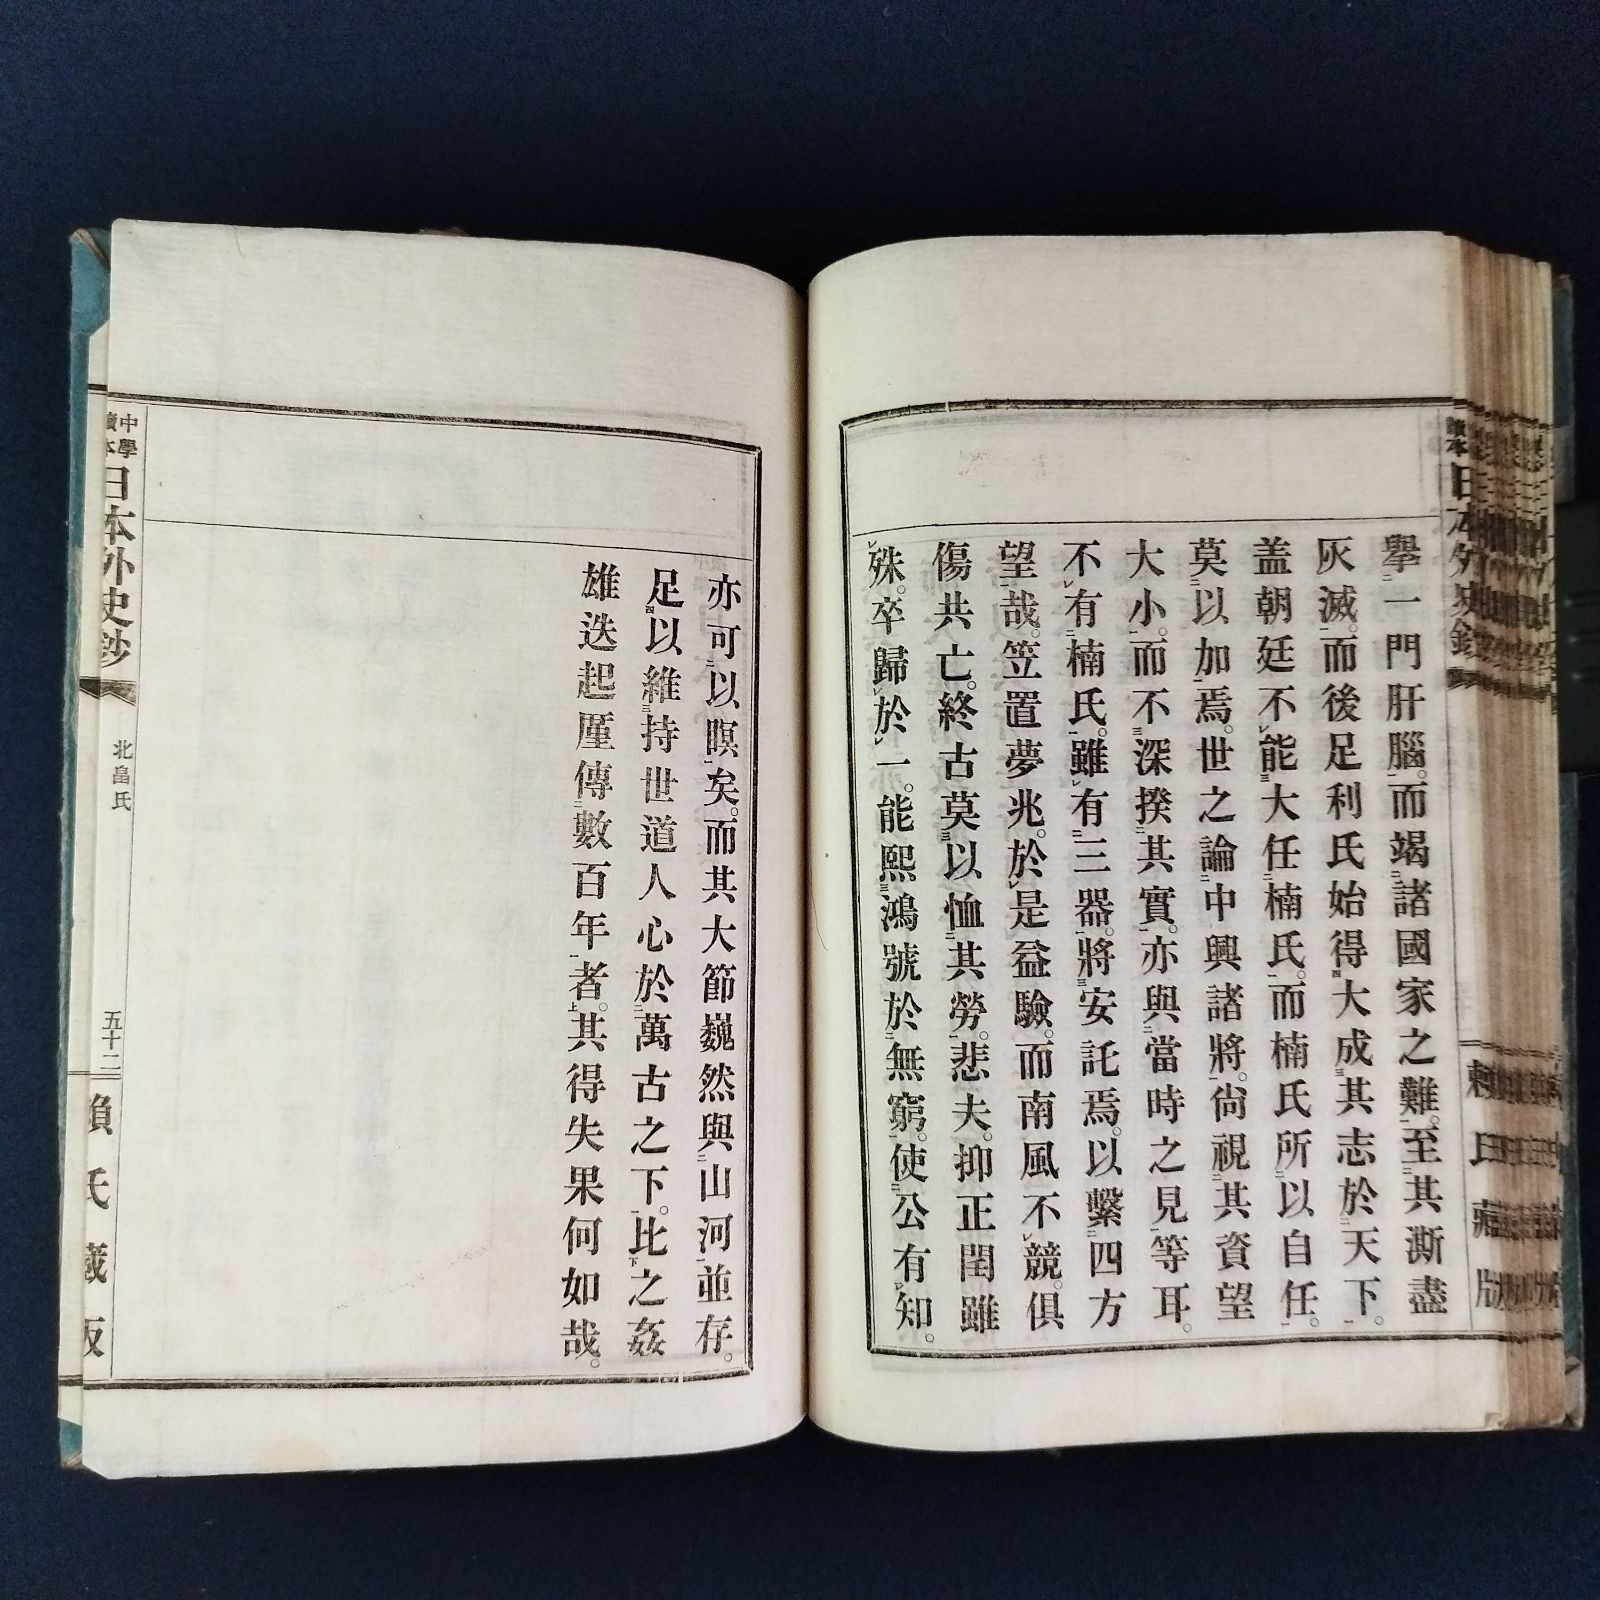 擧一門肝腦。而竭諸國家之難。至其澌盡
灰滅。而後足利氏始得大成其志於天下。
盖朝廷不能大任楠氏。而楠氏所以自任。
莫以加焉。世之論中興諸將。尙視其資望
大小。而不深揆其實。亦與當時之見等耳。
不有楠氏。雖有三器。將安託焉。以繫四方
望哉。笠置夢兆。於是益驗。而南風不競。俱
傷共亡。終古莫以恤其勞。悲夫。抑正閏雖
殊。卒歸於一。能熙鴻號於無窮。使公有知。
亦可以瞑矣。而其大節巍然與山河並存。
足以維持世道人心於萬古之下。比之姦
雄迭起僅傳數百年者。其得失果何如哉。
中學
讀本
日本外史鈔
北畠氏
五十二
賴氏藏版
讀本
日本外史鈔
賴氏藏版